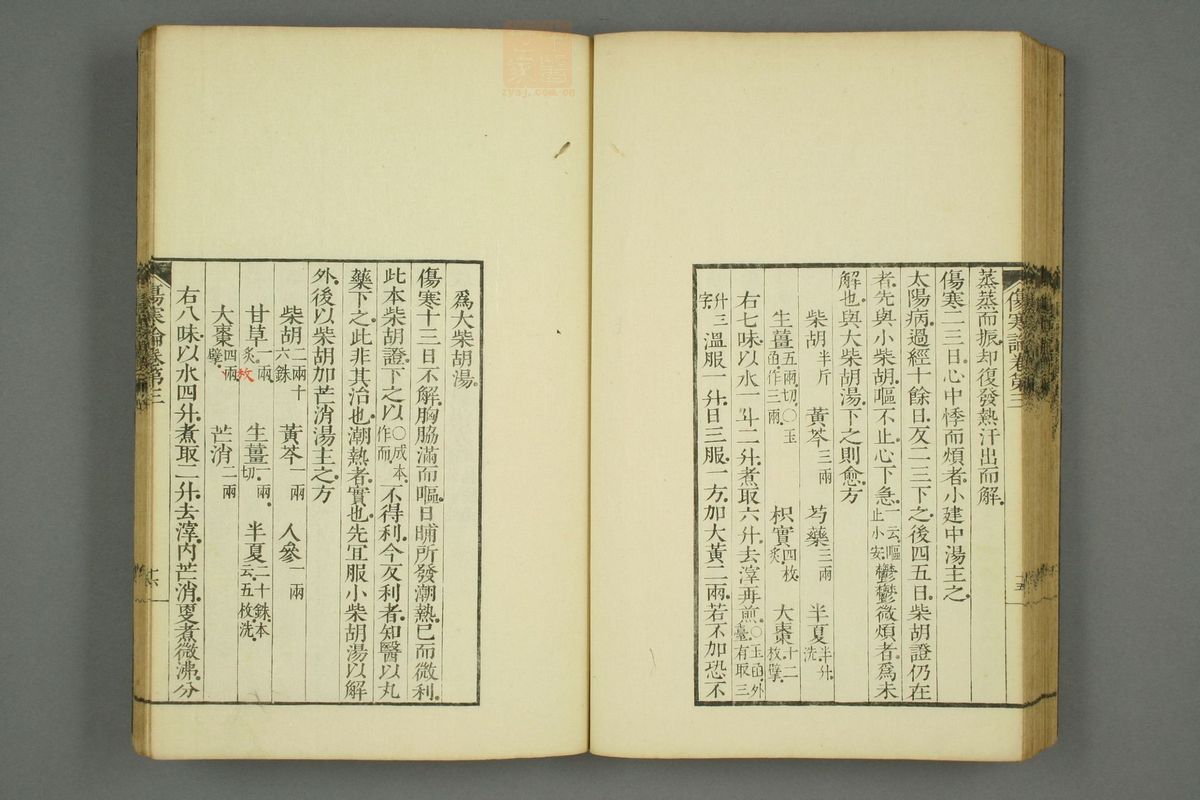 蒸蒸而振却復發熱汗出而解
傷寒二三日心中悸而煩者小建中湯主之
太陽病過經十餘日反二三下之後四五日柴胡證仍在
者先與小柴胡嘔不止心下急一云嘔止小安鬱鬱微煩者爲未
解也與大柴胡湯下之則愈方
柴胡半斤 黃芩三兩 芍藥三兩 半夏半升洗
生薑五兩切〇玉函作三兩 枳實四枚炙 大棗十二枚擘
右七味以水一斗二升煮取六升去滓再煎〇玉函外臺有取三
升三字溫服一升日三服一方加大黃二兩若不加恐不
傷寒論卷第三
十五
爲大柴胡湯
傷寒十三日不解胸脇滿而嘔日晡所發潮熱已而微利
此本柴胡證下之以〇成本作而不得利今反利者知醫以丸
藥下之此非其治也潮熱者實也先宜服小柴胡湯以解
外後以柴胡加芒消湯主之方
柴胡二兩十六銖 黃芩一兩 人參一兩
甘草一兩炙 生薑一兩切 半夏二十銖本云五枚洗
大棗四兩擘 枚 芒消二兩
右八味以水四升煮取二升去滓內芒消更煮微沸分
傷寒論卷第三
十六
zysj.com.cn